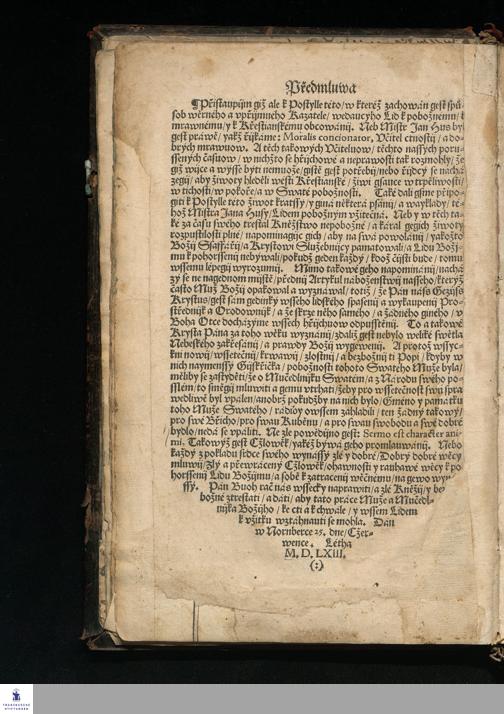 Předmluwa
¶Přistaupijm giž ale k Postylle této/ w kteréž zachowán gest spů-
sob wěrného a vpřijmného Kazatele/ wedaucyho Lid k pobožnému/ k
mrawnému/ y k Křestianskému obcowánij. Neb Mistr Jan Hus byl
gest práwě/ yakž řijkáme: Moralis concionator, Včitel ctnostij/ a do-
brých mrawuow. A těch takowých Včiteluow/ těchto nassých poru-
ssených časuow/ w nichžto se hřijchowé a neprawosti tak rozmohly/ že
giž wijce a wysse býti nemuože/ gistě gest potřebij/ nebo řijdcý se nachá
zegij/ aby žiwoty hleděli wésti Křestianské/ žiwi gsauce w trpěliwosti/
w tichosti/ w pokoře/ a w Swaté pobožnosti. Také dali gsme připo-
giti k Postylle této žiwot kratssý/ y giná některá psánij/ a wayklady/ té-
hož Mistra Jana Husy/ Lidem pobožným vžitečná. Neb y w těch ta-
ké za času swého trestal Kněžstwo nepobožné/ a káral gegich žiwoty
rozpustilosti plné/ napomínagijc gich/ aby na swá powolánij/ yakožto
Božij Ssaffářij/ a Krystowi Služebnijcy pamatowali/ a Lidu Božij-
mu k pohorssenij nebýwali/ pokudž geden každý/ kdož čijsti bude/ tomu
wssemu lépegij wyrozumij. Mimo takowé geho napomínánij/ nachá-
zý se na gednom mijstě/ přednij Artykul náboženstwij nassého/ kterýž
často Muž Božij opakowal a wyznáwal/ totiž/ že Pán náš Gežijs
Krystus/ gest sám gedinký wsseho lidského spasenij a wykaupenij Pro-
střednijk a Orodownijk/ a že skrze něho samého/ a žádného giného/ v
Boha Otce docházýme wssech hřijchuow odpusstěnij. To a takowé
Krysta Pána za toho wěku wyznánij/ zdaliž gest nebylo weliké swětla
Nebeského zakřesánij/ a prawdy Božij wygewenij. A protož wssyc-
kni nowij/ wssetečnij/ krwawij/ zlostnij/ a bezbožnij ti Popi/ kdyby w
nich naymenssý Gijskřička/ pobožnosti tohoto Swatého Muže byla/
měliby se zastyděti/ že o Mučedlnijku Swatém/ a z Národu swého po-
sslém/ to směgij mluwiti a gemu vtrhati/ žeby pro wssetečnost swij spra
wedliwě byl vpálen/ anobrž pokudžby na nich bylo/ Gméno y památku
toho Muže Swatého/ rádiby owssem zahladili/ ten žádný takowý/
pro swé Břicho/ pro swau Kuběnu/ a pro swau swobodu a swé dobré
bydlo/ nedá se vpáliti. Ne zle powědijno gest: Sermo est character ani-
mi. Takowýž gest Cžlowěk/ yakéž býwá geho promlauwánij. Nebo
každý z pokladu srdce swého wynassý zlé y dobré/ Dobrý dobré wěcy
mluwij/ Zlý a přewrácený Cžlowěk/ ohawnosti y rauhawé wěcy k po
horssenij Lidu Božijmu/ a sobě k zatracenij wěčnému/ na gewo wyn-
ssý. Pán Buoh rač nás wssecky naprawiti/ a zlé Kněžij/ y be
božné ztrestati/ a dáti/ aby tato práce Muže a Mučedl-
nijka Božijho/ ke cti a k chwále/ y wssem Lidem
k vžitku wztáhnauti se mohla. Dán
w Nornberce 25. dne/ Cžer-
wence. Létha
M. D. LXIII.
(:)